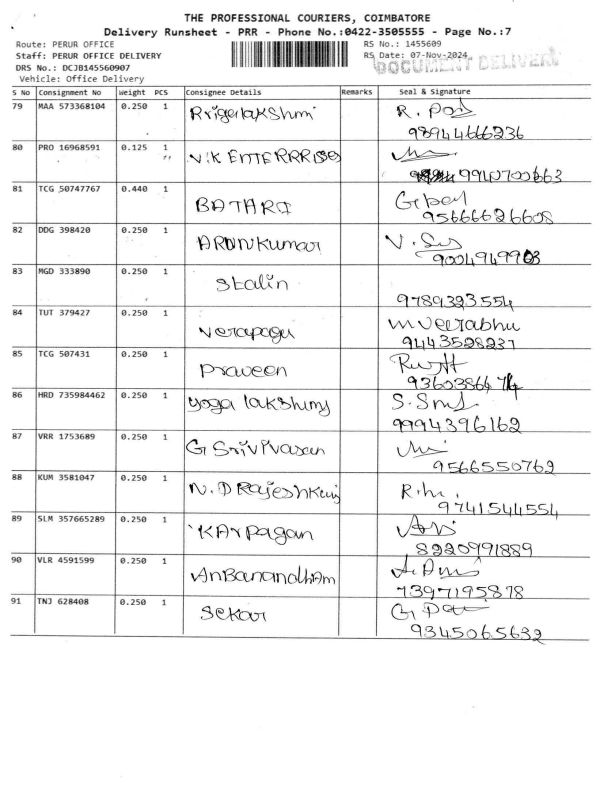 THE PROFESSIONAL COURIERS, COIMBATORE
Delivery Runsheet - PRR - Phone No.:0422-3505555 - Page No.:7
Route: PERUR OFFICE RS No.: 1455609
Staff: PERUR OFFICE DELIVERY RS Date: 07-Nov-2024
DRS No.: DCJB145560907 DOCUMENT DELIVERY
Vehicle: Office Delivery
S No Consignment No Weight PCS Consignee Details Remarks Seal & Signature
79 MAA 573368104 0.250 1 R.
98944666236
80 PRO 16968591 0.125 1 V.K ENTERRRISES
81 TCG 50747767 0.440 1 BATARI
95666626608
82 DDG 398420 0.250 1 ARUNKumar V.
83 MGD 333890 0.250 1 Stalin
9789323554
84 TUT 379427 0.250 1 M Veerabhu
9443528237
85 TCG 507431 0.250 1 Praveen
86 HRD 735984462 0.250 1 yoga lakshmi S.
9994396162
87 VRR 1753689 0.250 1 G Srivivasan
9566550762
88 KUM 3581047 0.250 1 N.D Rajeshkumar
9741544554
89 SLM 357665289 0.250 1 KArpagam
8220991889
90 VLR 4591599 0.250 1 AnBanandham
7397195878
91 TNJ 628408 0.250 1 Sekar G
9345065632